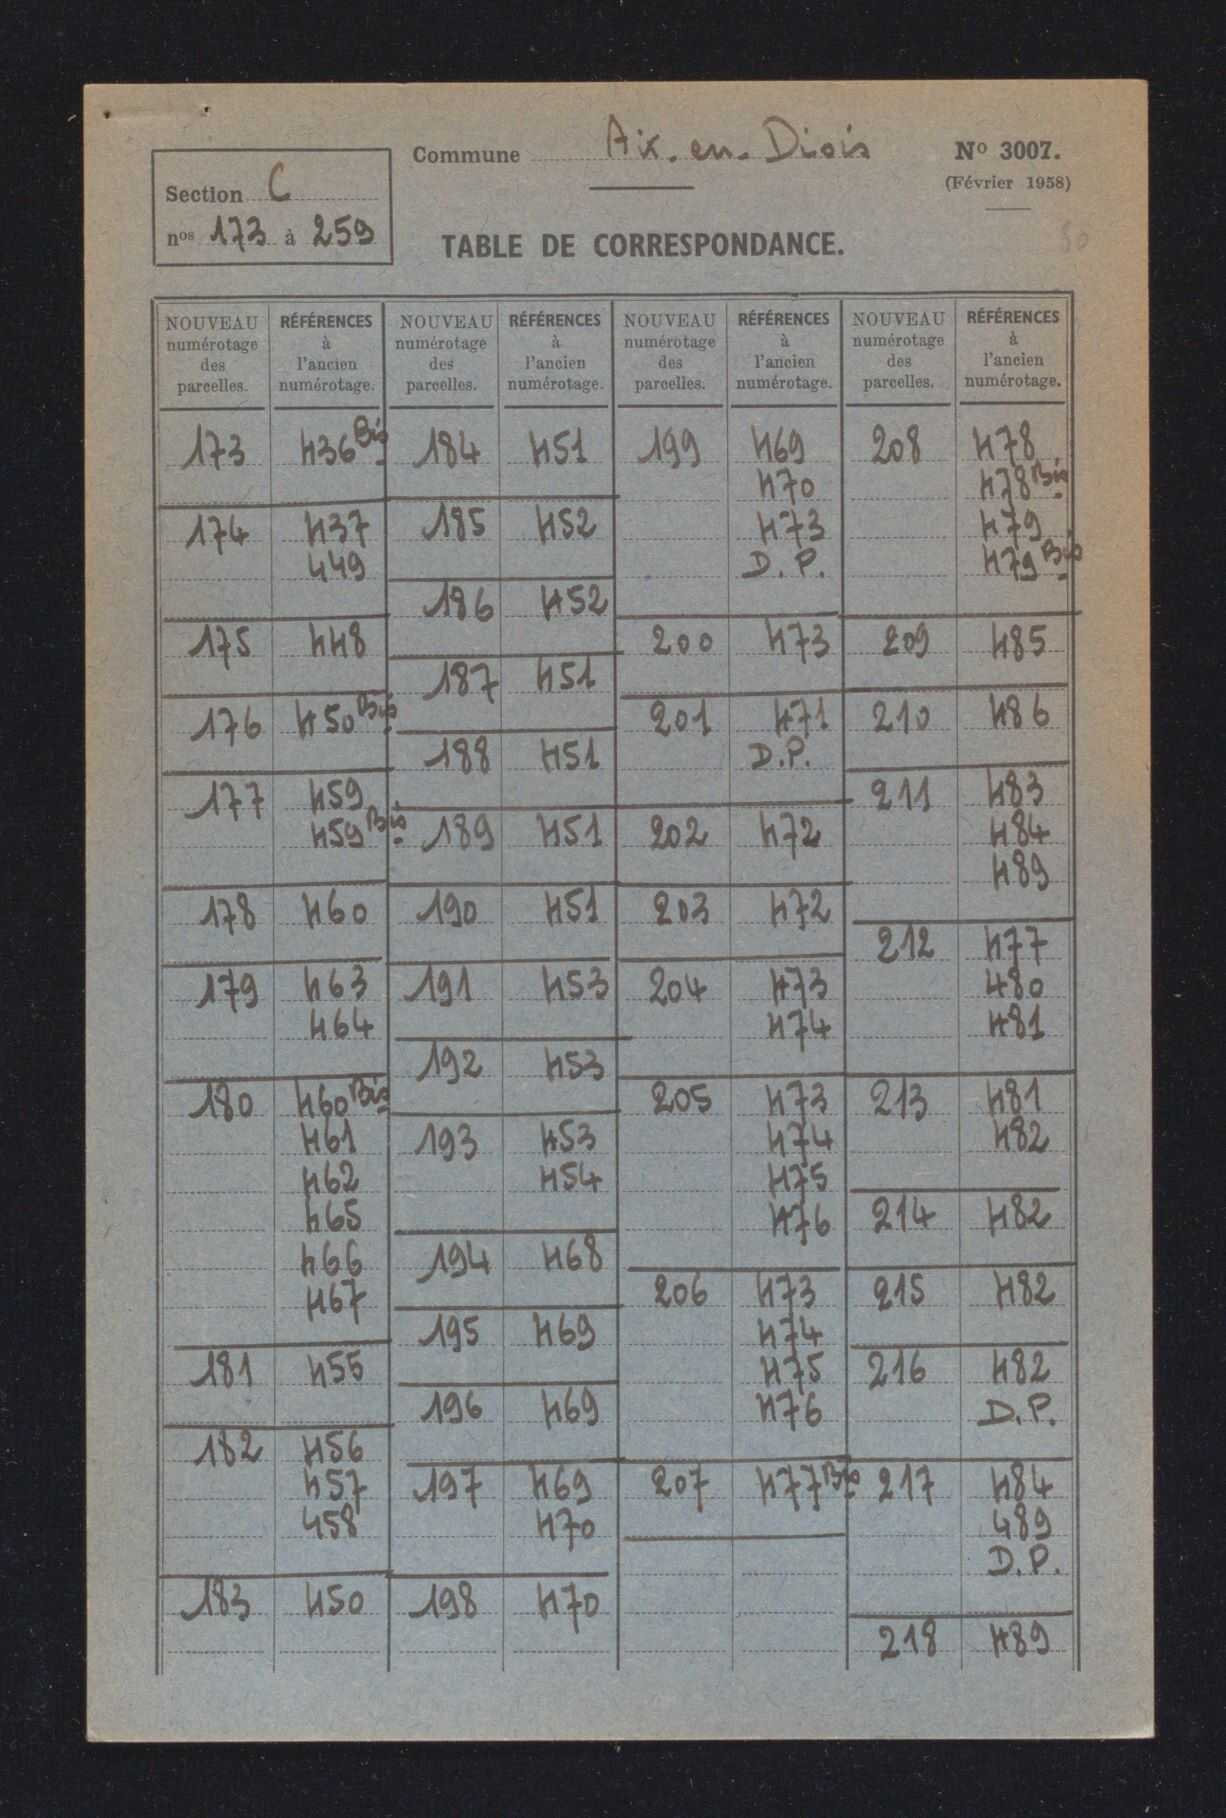 Commune Aix-en-Diois
N° 3007.
(Février 1958)
Section C
nos 173 à 259
TABLE DE CORRESPONDANCE.
50
NOUVEAU numérotage des parcelles.
RÉFÉRENCES à l'ancien numérotage.
173 436 Bis
174 437
449
175 448
176 450 Bis
177 459
459 Bis
178 460
179 463
464
180 460 Bis
461
462
465
466
467
181 455
182 456
457
458
183 450
NOUVEAU numérotage des parcelles.
RÉFÉRENCES à l'ancien numérotage.
184 451
185 452
186 452
187 451
188 451
189 451
190 451
191 453
192 453
193 453
454
194 468
195 469
196 469
197 469
470
198 470
NOUVEAU numérotage des parcelles.
RÉFÉRENCES à l'ancien numérotage.
199 469
470
473
D.P.
200 473
201 471
D.P.
202 472
203 472
204 473
474
205 473
474
475
476
206 473
474
475
476
207 477 Bis
NOUVEAU numérotage des parcelles.
RÉFÉRENCES à l'ancien numérotage.
208 478
478 Bis
479
479 Bis
209 485
210 486
211 483
484
489
212 477
480
481
213 481
482
214 482
215 482
216 482
D.P.
217 484
489
D.P.
218 489